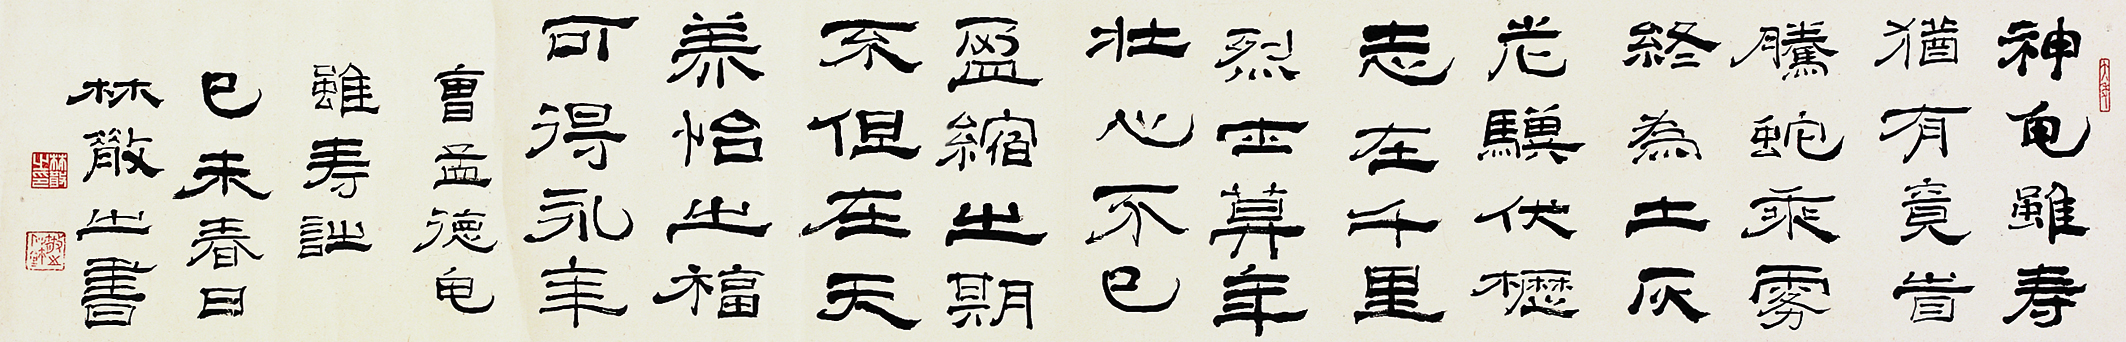 神龟雖寿
猶有竟旹
騰蛇乘雾
終為土灰
老驥伏櫪
志在千里
烈士莫年
壮心不已
盈縮之期
不但在天
养怡之福
可得永年
曹孟德龟
雖寿詩
己未春日
林散之書
林散之印